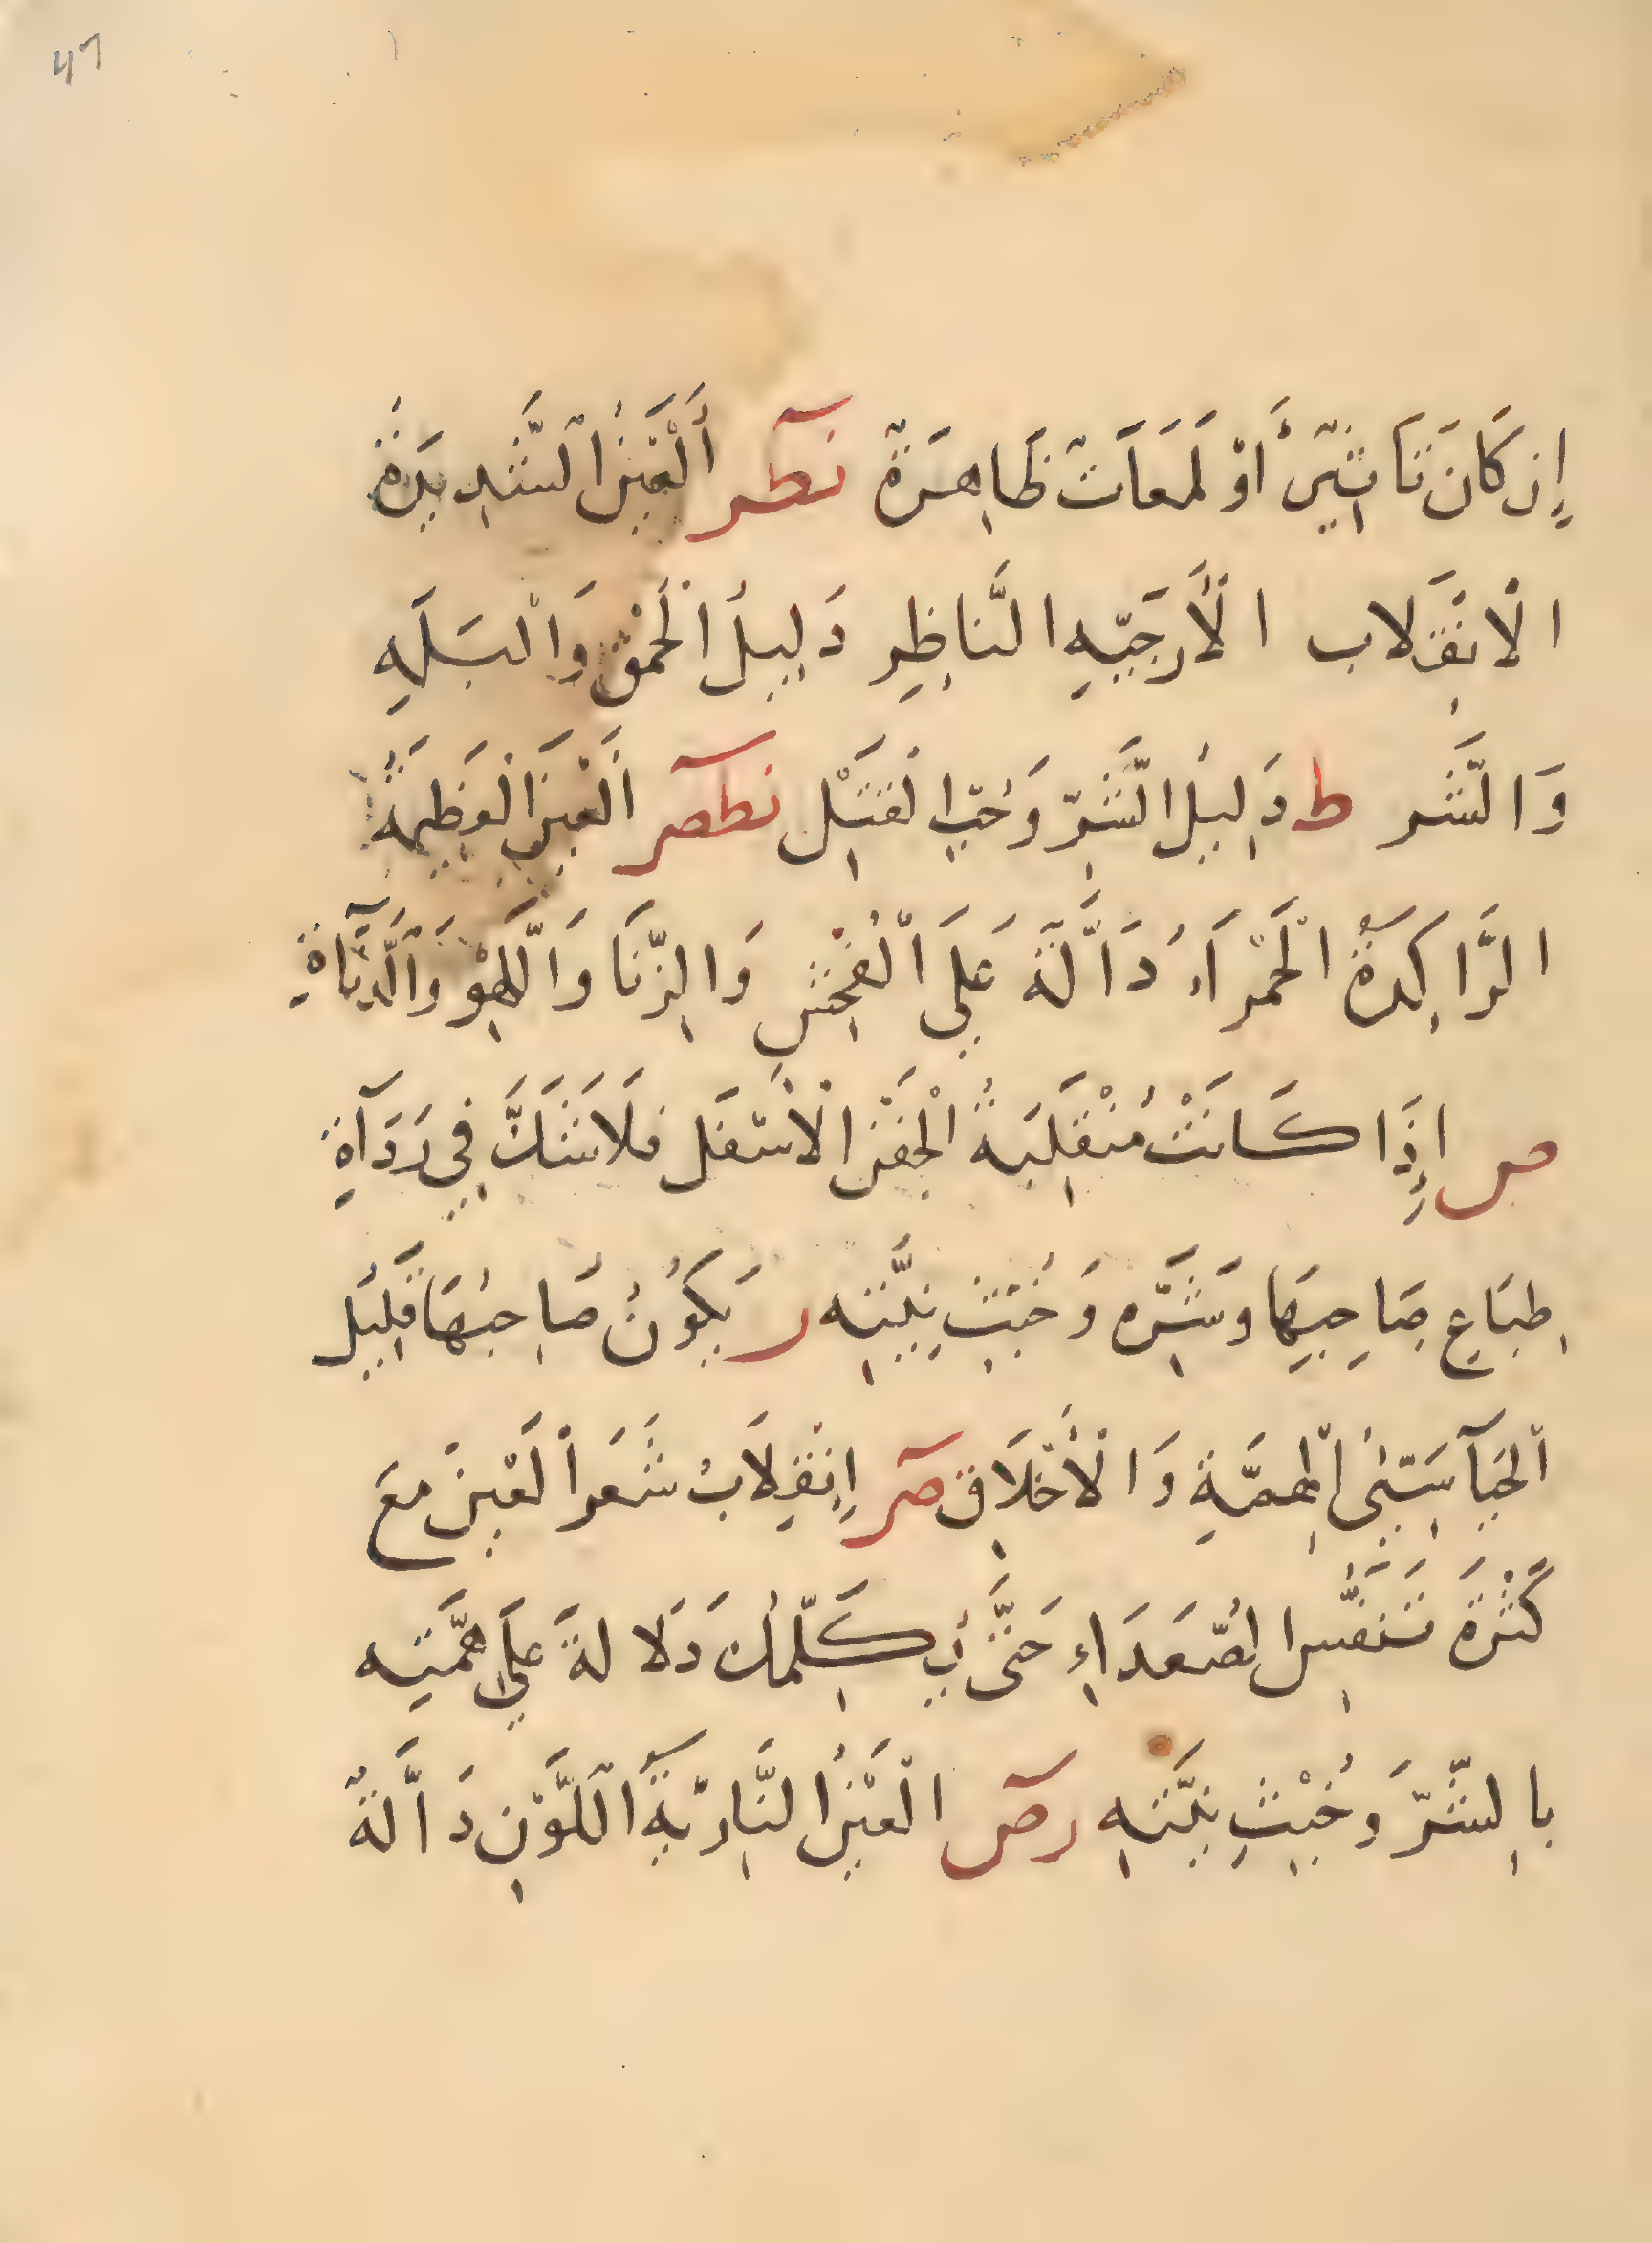 47
إِن كَانَ نَاتِيَّ أَوْ لَمَعَاتٌ ظَاهِرَةٌ نطر أَلْعَيْنُ الشَّدِيدَةُ
الْانْقِلَاب الْأَرَجِيّهِ النَّاظِرِ دَلِيلُ الْحُمْقِ وَالْبَلَهِ
وَالشر ط دَلِيلُ الشَّرِّ وَحُبِّ الْقَتْلِ نطصر الْعَيْنُ الْعَظِيمَةُ
الرَّاكِدَةُ الْحَمْرَاءُ دَالَّةٌ عَلَى الْفُحْشِ وَالزِّنَا وَاللَّهْوِ وَالدَّنَاةِ
ص إِذَا كَانَتْ مُنْقَلِبَةُ الْجَفْنِ الْأَسْفَلِ فَلَا شَكَّ فِي رَدَآةِ
طِبَاعِ صَاحِبِهَا وَشَرِّهِ وَخُبْثِ نِيَّتِهِ ر يَكُونُ صَاحِبُهَا قَلِيلَ
الْحَيَآ سَيِّئُ الْهِمَّةِ وَالْأَخْلَاقِ صر اِنْقِلَابُ شَعَرِ الْعَيْنِ مَعَ
كَثْرَةِ تَنَفُّسِ الصُّعَدَاءِ حَتَّى يُكَلِّمَكَ دَلَالَةٌ عَلَى هِمَّتِهِ
بِالشَّرِّ وَخُبْثِ نِيَّتِهِ رص الْعَيْنُ النَّارِيَّةُ اللَّوْنِ دَالَّةٌ